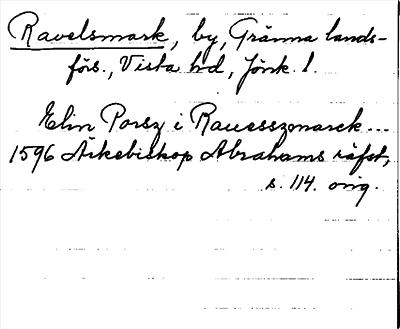 Ravelsmark, by, Gränna lands-
förs., Vista hd, Jönk. l.
Elin Porsz i Rauesszmarck...
1596 Ärkebiskop Abrahams räfst,
s. 114. orig.